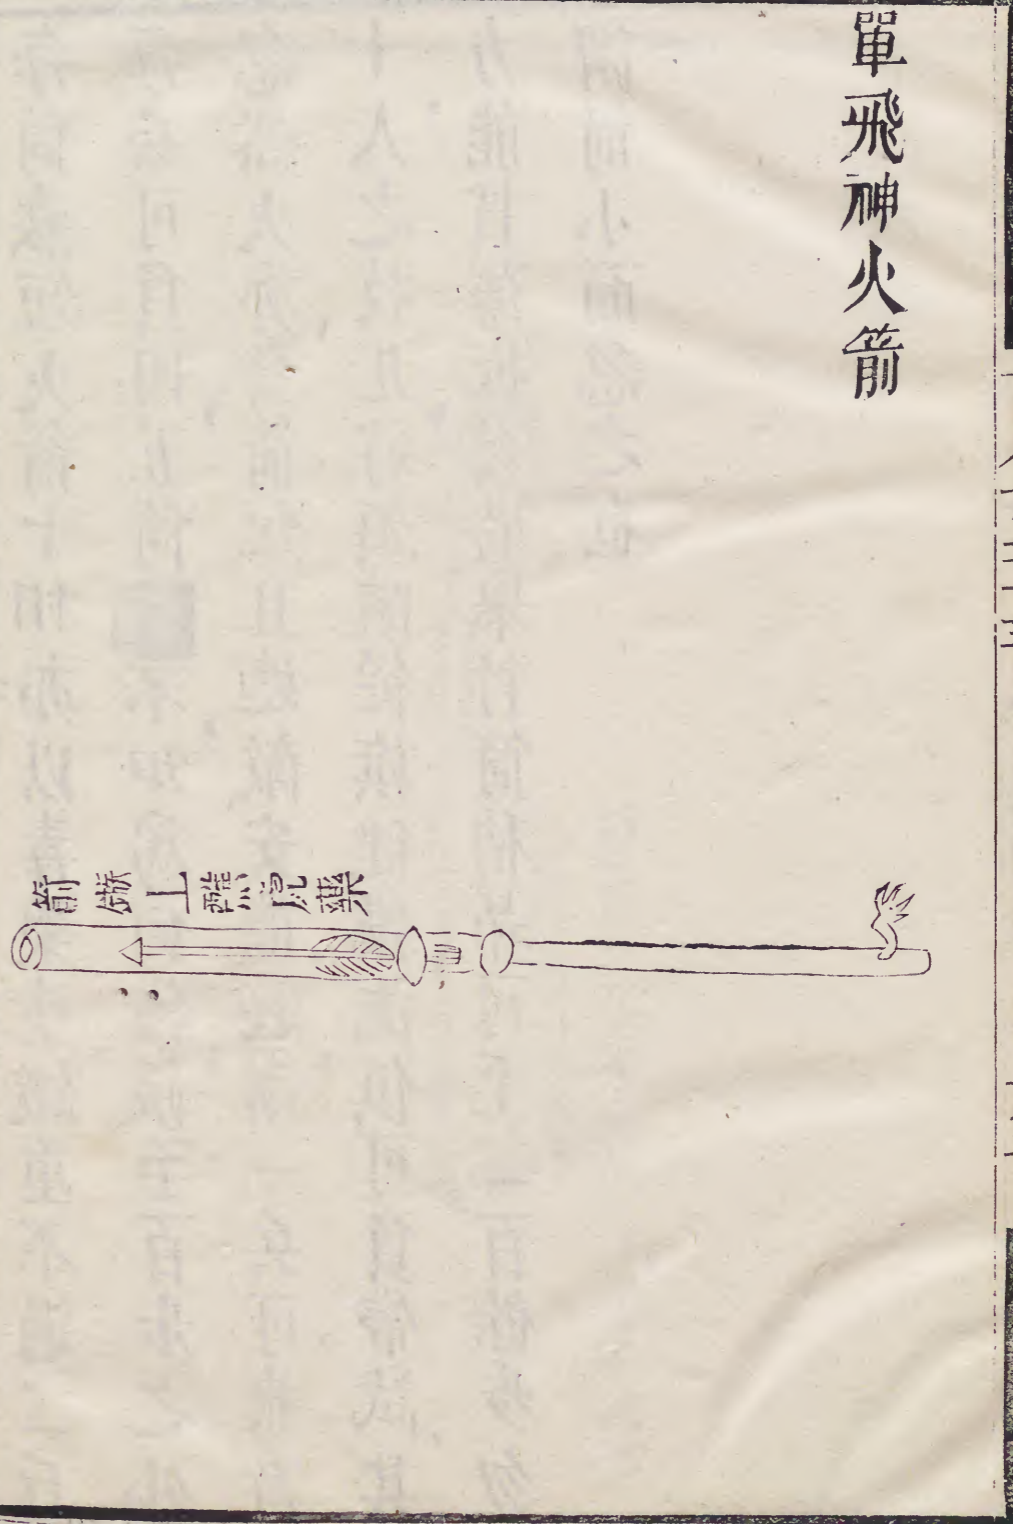 單飛神火箭
箭鏃上蘸虎藥